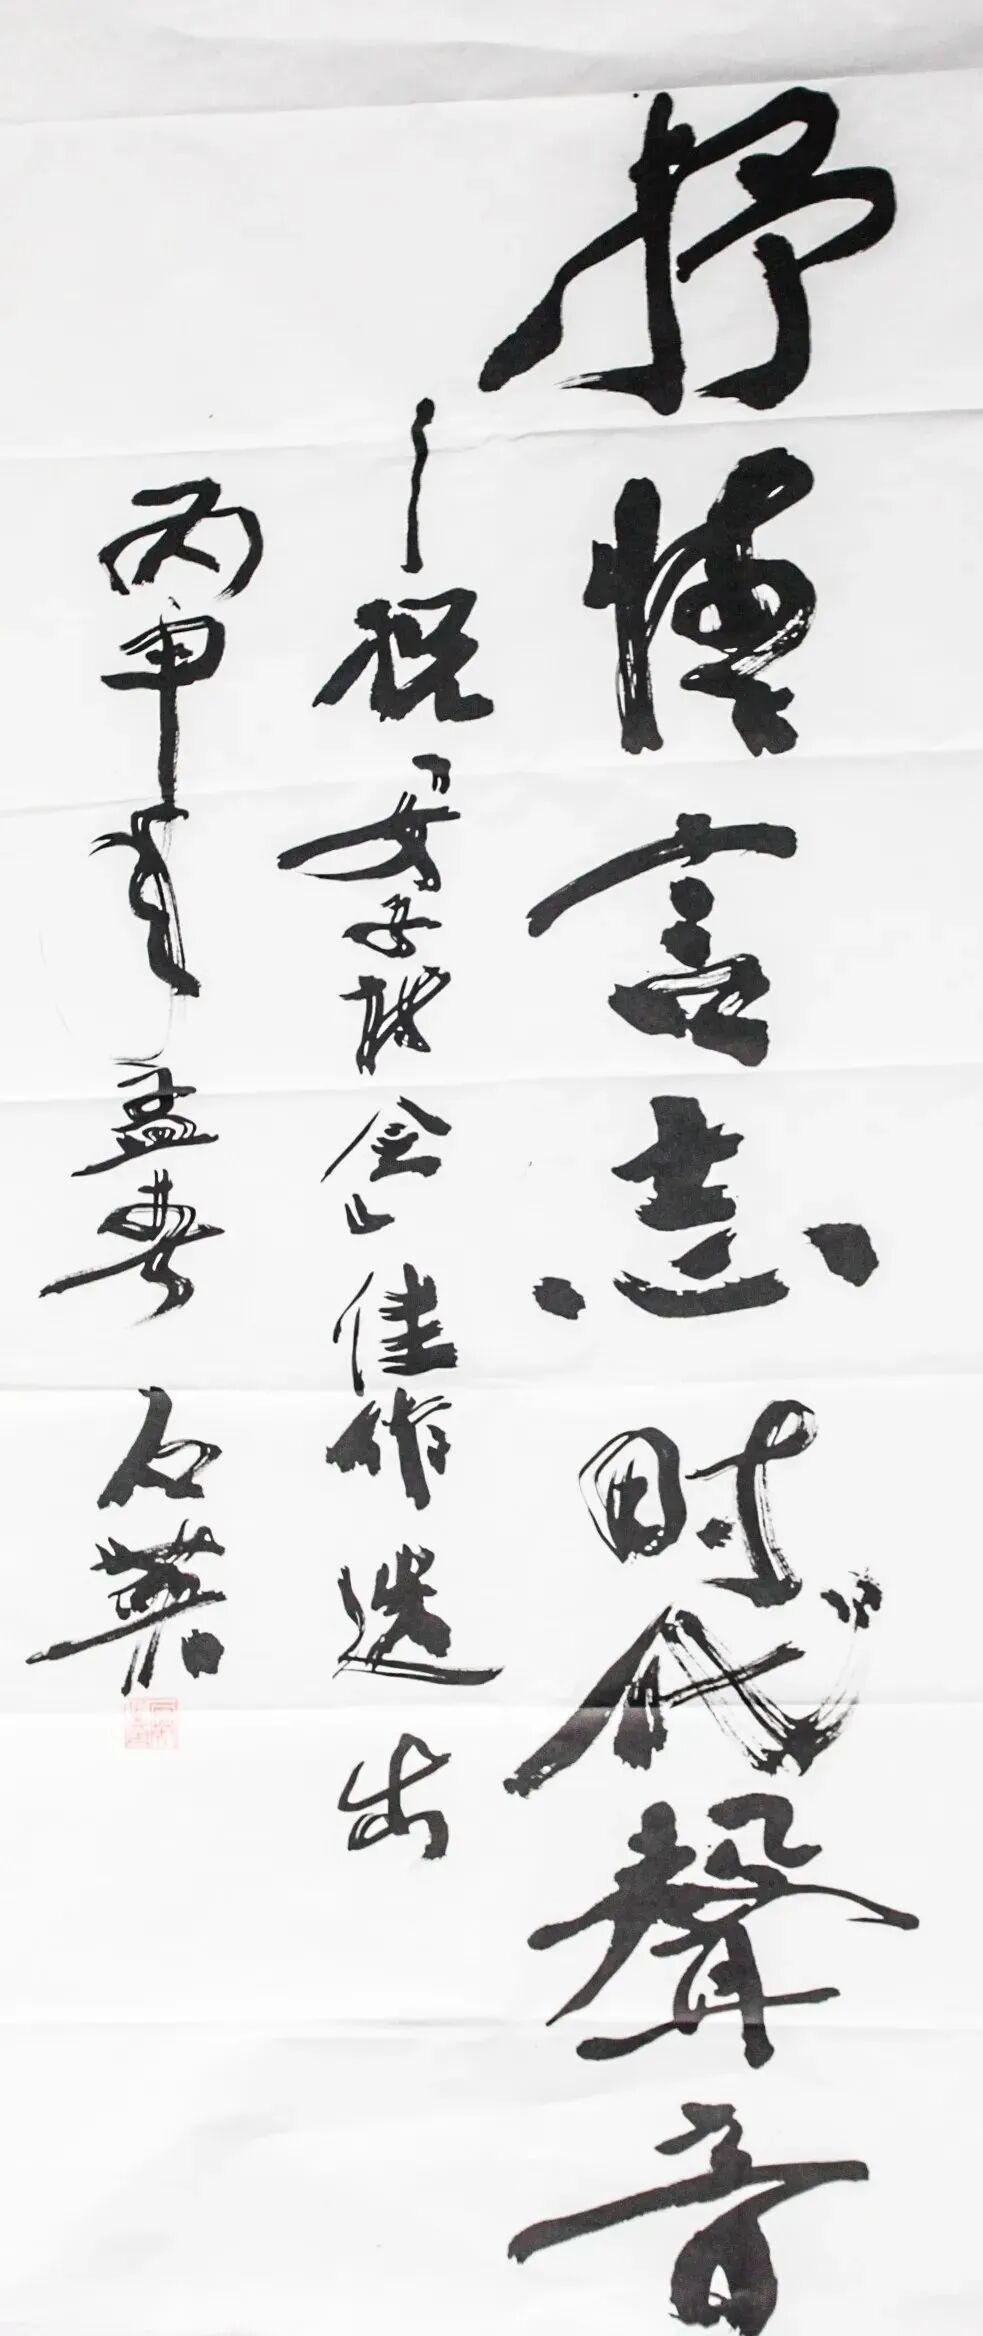 抒情言志 时代聲音
—祝「女子诗会」佳作迭出
丙申年孟春 石英